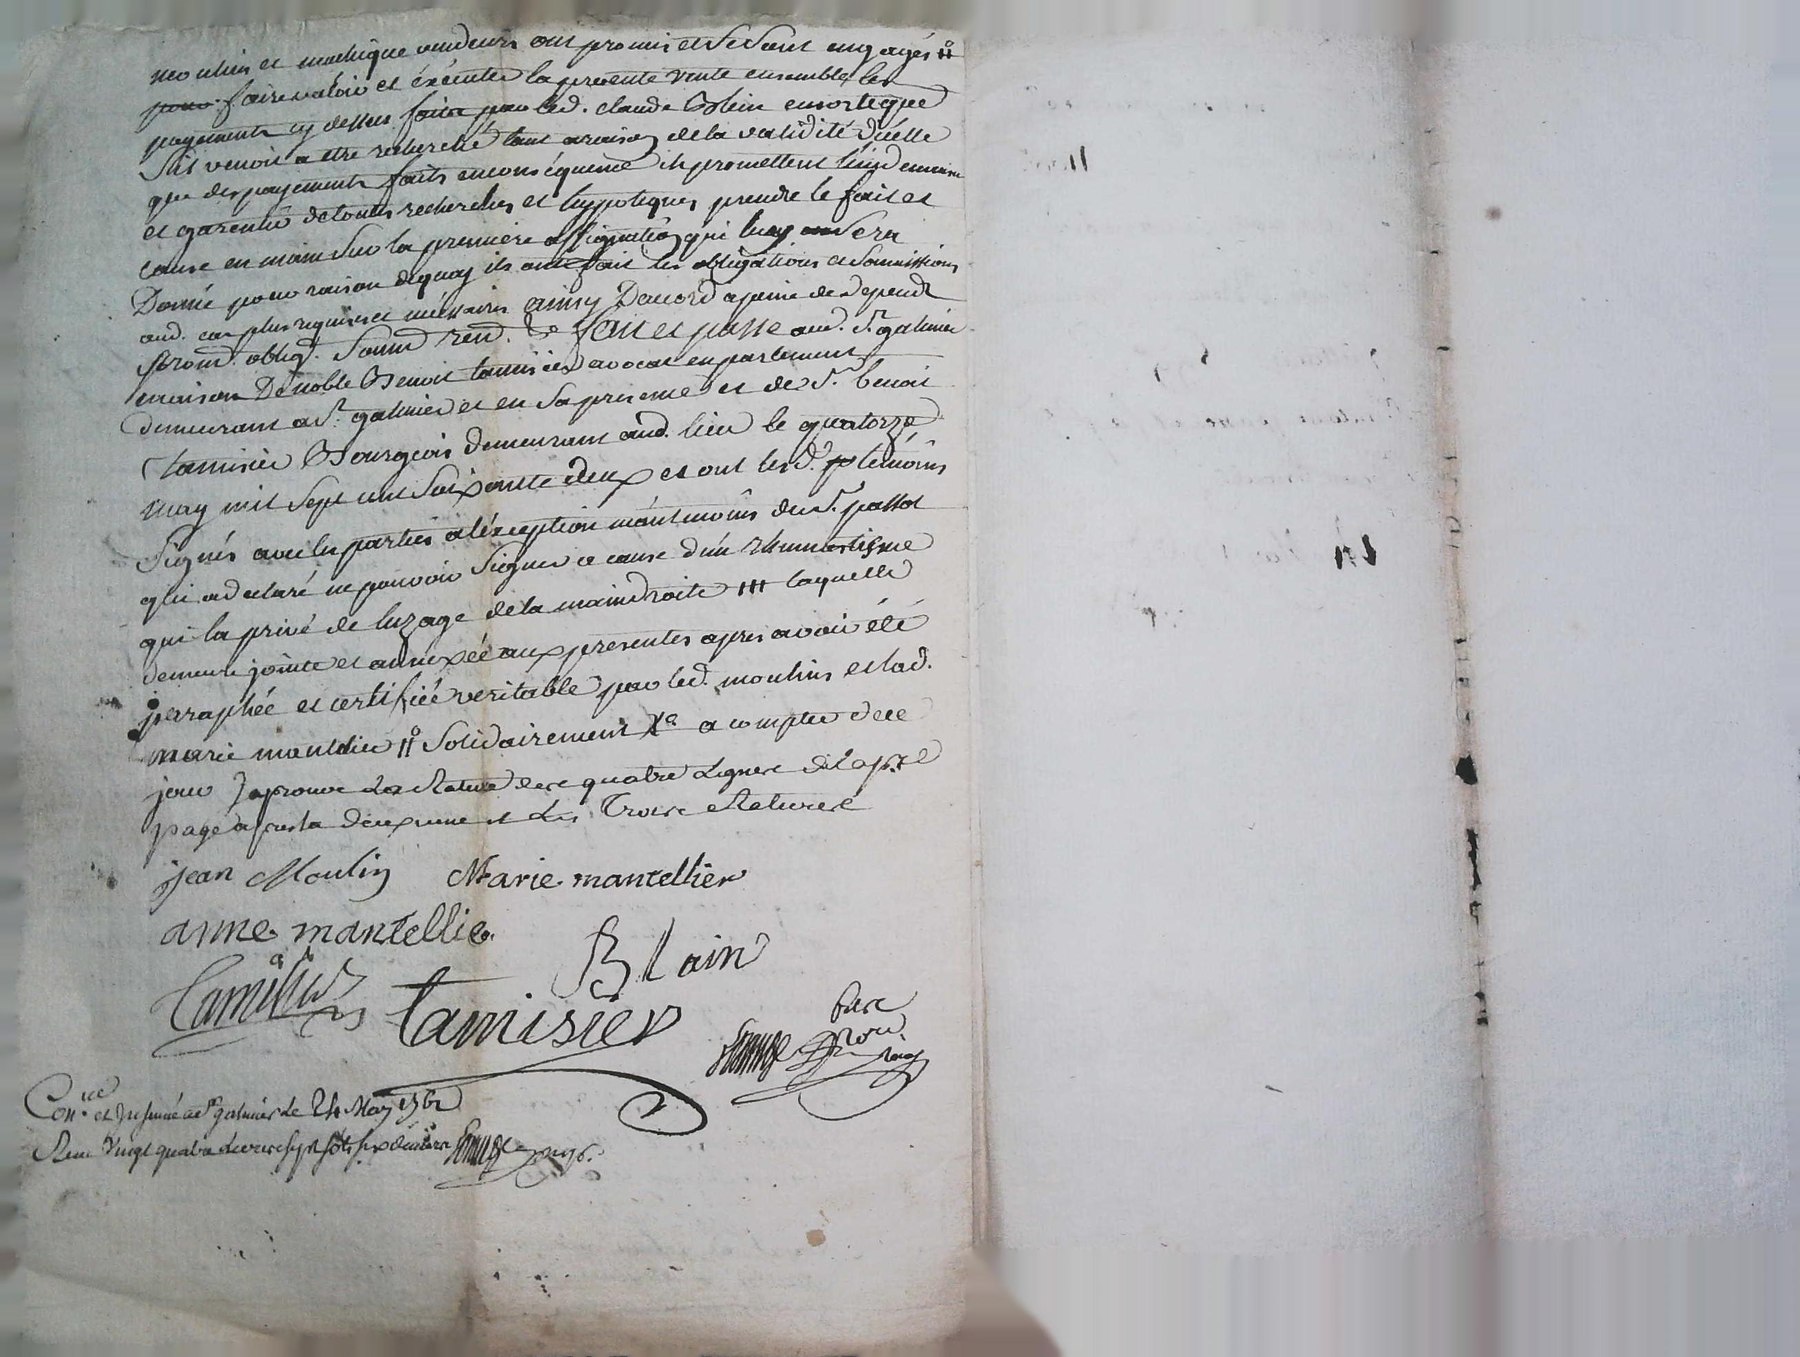 moulins et vendeurs ont promis et se sont engagés #
pour faire valoir et éxécuter la presente vente ensemble les
payements cy dessus faits par led. claude Blein ensorte que
sils venoit a etre recherché tant a raison de la validité d'icelle
que des payements faits en conséquence ils promettent
et garentie de toutes recherches et hypoteques prendre le fait et
cause en main sur la premiere assignation qui luy en sera
Donnée pour raison dequoy ils ont fait les obligations et soumissions
aud. cas plus requises et nécéssaires ainsy Daccord a peine de depends
prom. oblig. soum. ren. &c fait et passé aud. St. galmier
maison De noble Benoit tamisier avocat en parlement
demeurant a St. galmier et en sa presence et de Sr. benoit
tamisier Bourgeois demeurant aud. lieu le quatorze
may mil sept cent soixante deux et ont les d. p temoins
signés avec les parties a l'éxception néantmoins du Sr. passot
qui a declaré ne pouvoir signer a cause d'un rhumatisme
qui la privé de luzage de la main droite ### laquelle
demeure jointe et annéxée aux presentes apres avoir été
paraphée et certifiée veritable par led. moulins et lad.
marie mantelier # solidairement Xa a compter de ce
jour Japrouve La Rature dese quatre Lignese
page a deuxieme et des Troise Raturese
jean Moulin Marie mantellier
anne mantellie
Blain
tamisier
tamisier
Con.lé et a St. galmier Le 24 May 1762
Receu Vingt quatre Livrese sept sols six denierse